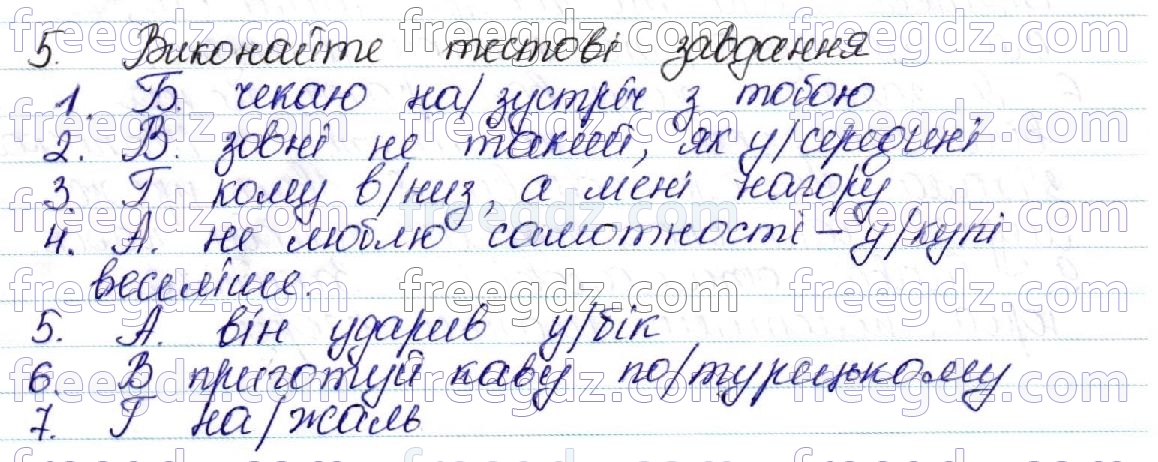 5. Виконайте тестові завдання
1. Б. чекаю на/зустріч з тобою
2. В. зовні не такий, як у/середині
3. Г кому в/низ, а мені нагору
4. А. не люблю самотності – у/купі
веселіше.
5. А. він ударив у/бік
6. В приготуй каву по/турецькому
7. Г на/жаль
freegdz.com